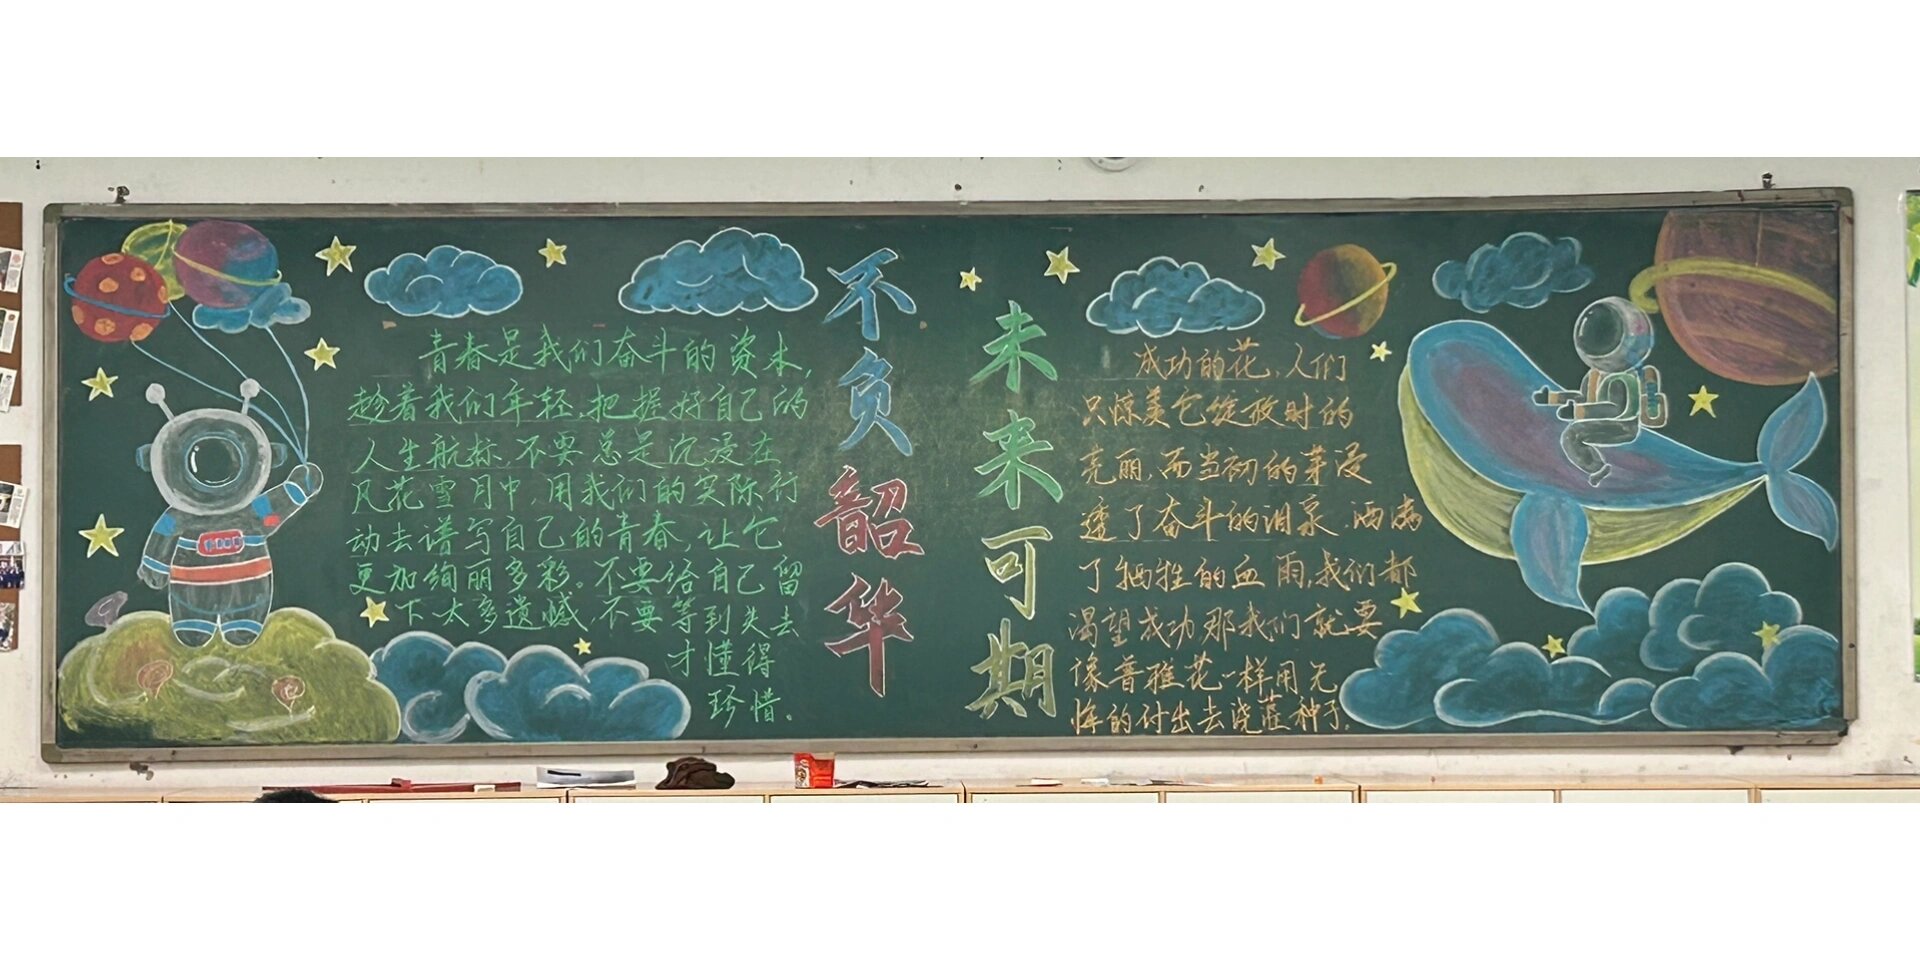 青春是我们奋斗的资本,
趁着我们年轻,把握好自己的
人生航标,不要总是沉浸在
风花雪月中,用我们的实际行
动去谱写自己的青春,让它
更加绚丽多彩。不要给自己留
下太多遗憾,不要等到失去
才懂得
珍惜。
不负韶华
未来可期
成功的花,人们
只惊羡它绽放时的
亮丽,而当初的芽浸
透了奋斗的泪泉,洒满
了牺牲的血雨,我们都
渴望成功,那我们就要
像普雅花一样用无
悔的付出去浇灌种子.